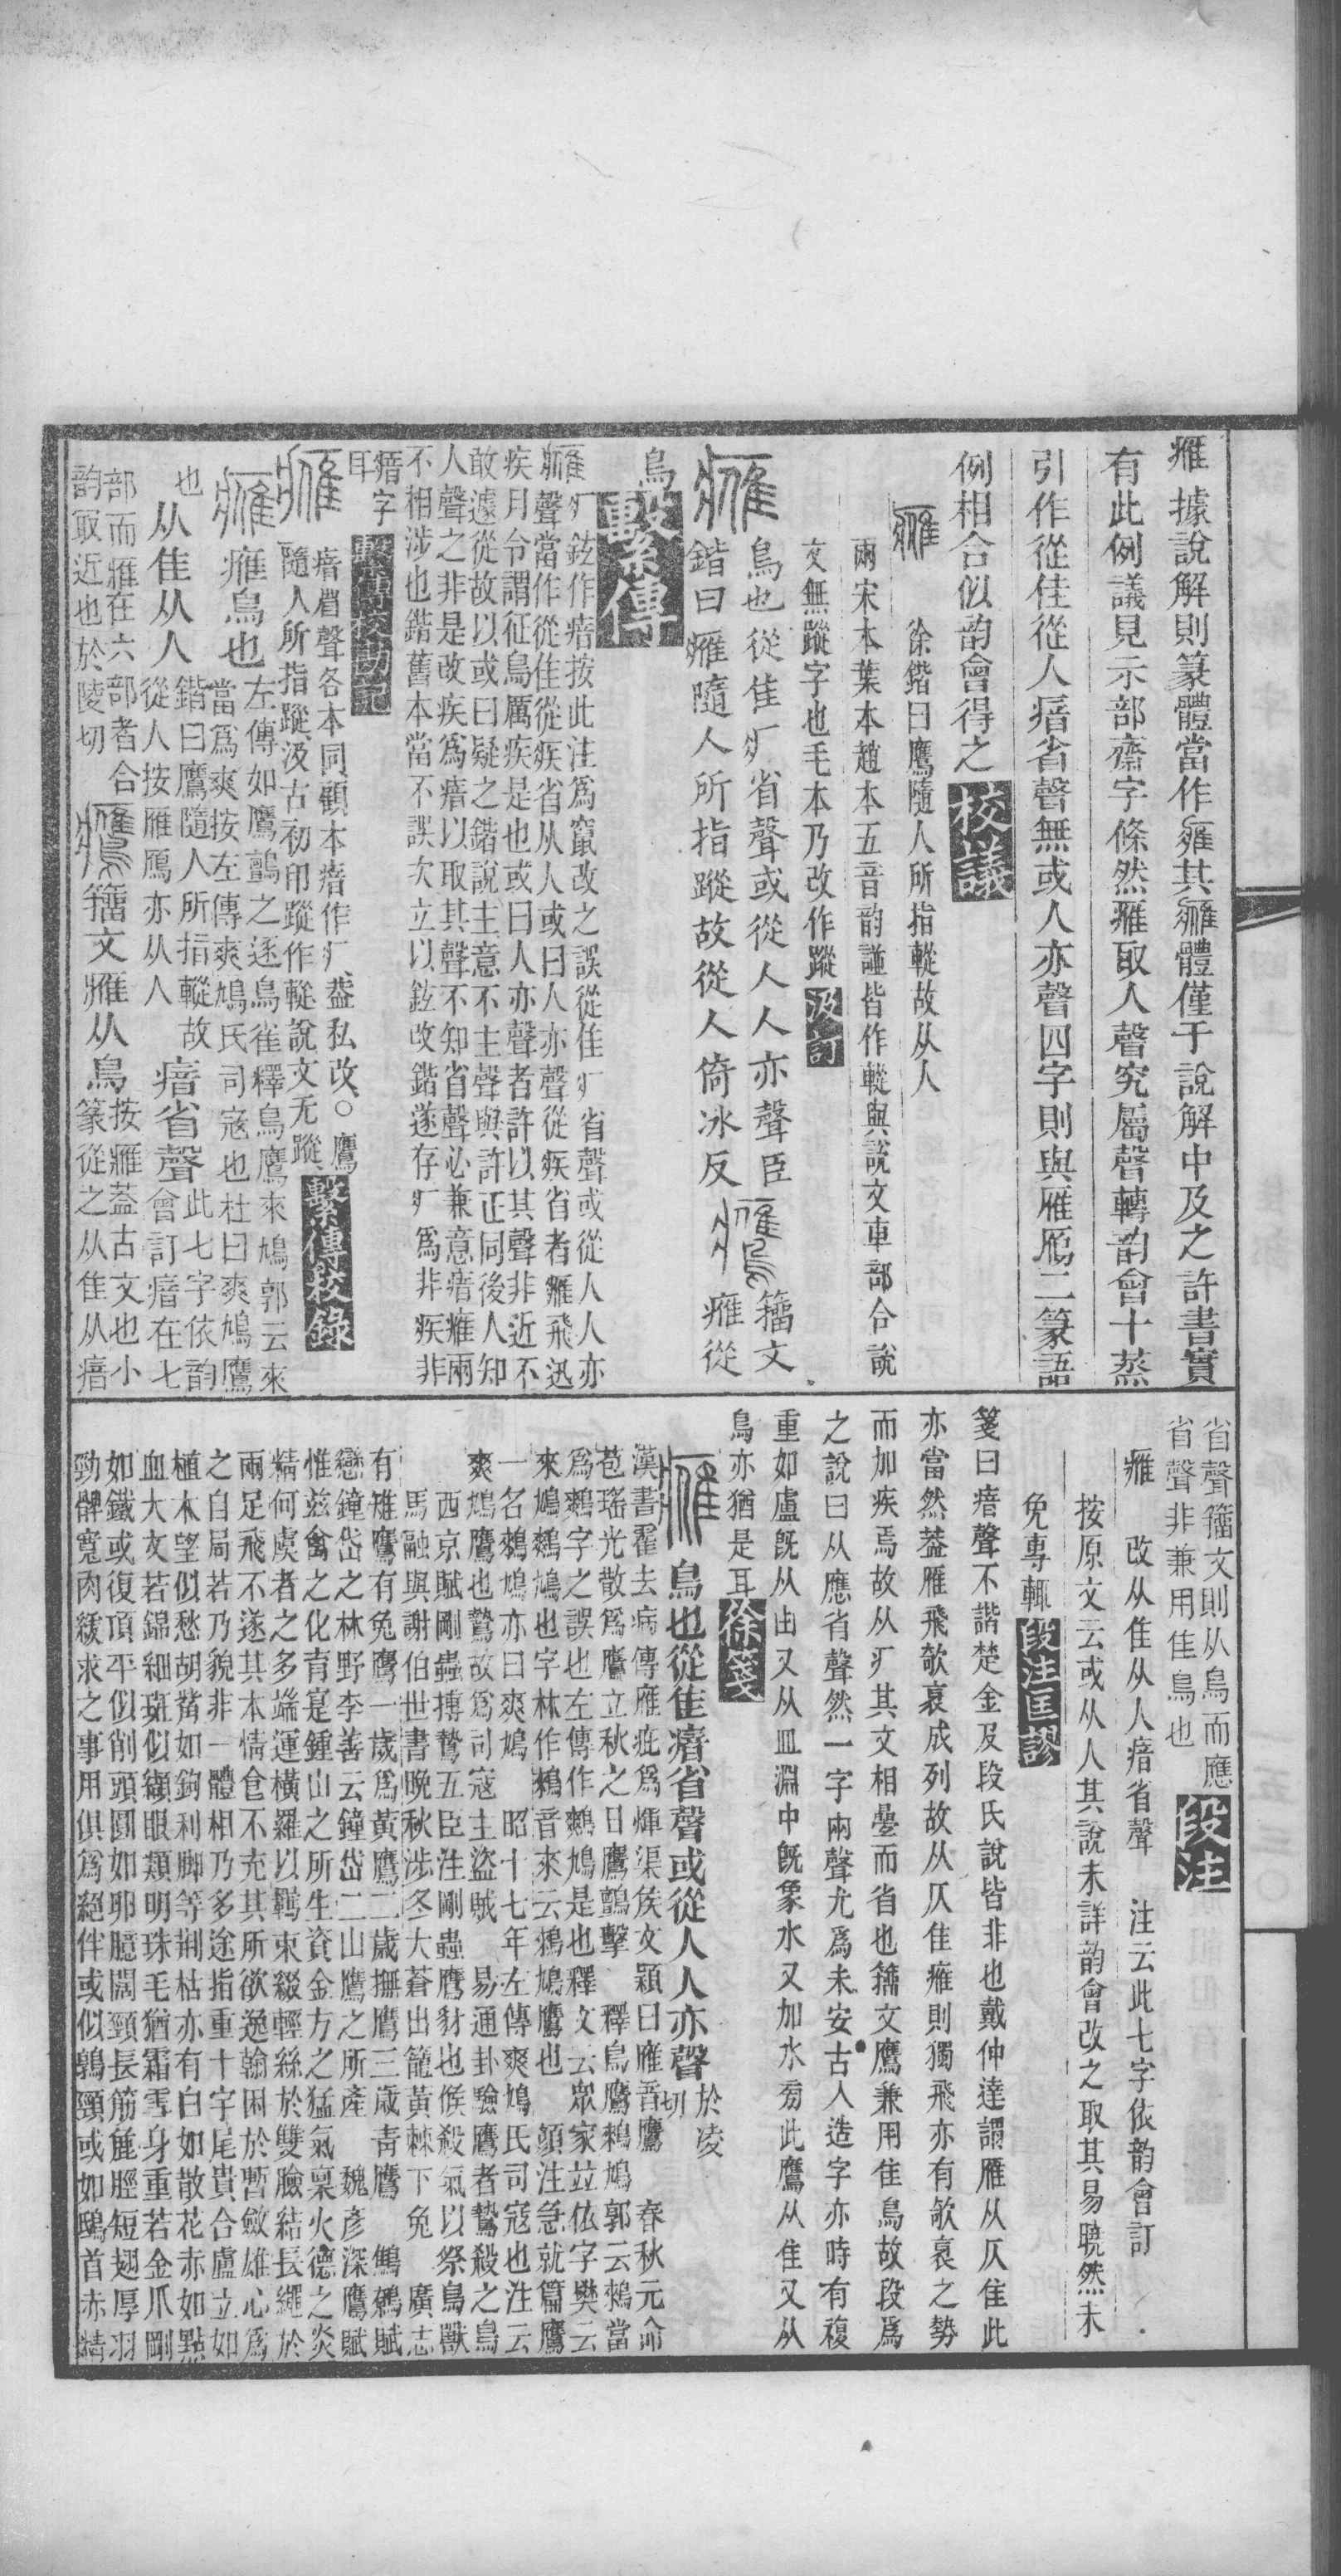 雁據說解則篆體當作癕其𤸰體僅于說解中及之許書實
有此例議見示部齋字條然雁取人聲究屬聲轉韵會十蒸
引作從隹從人瘖省聲無或人亦聲四字則與雁鴈二篆語
例相合似韵會得之校議
徐鍇曰鷹隨人所指䡮故从人
兩宋本葉本趙本五音韵譜皆作䡮與說文車部合說
文無蹤字也毛本乃改作蹤汲訂
鳥也從隹疒省聲或從人人亦聲臣
鍇曰𤸰隨人所指蹤故從人倚冰反 籒文𤸰從
鳥繫傳
𤸰疒鉉作瘖按此注爲竄改之誤從隹疒省聲或從人人亦
聲當作從隹從疾省从人或曰人亦聲從疾省者𤸰飛迅
疾月令謂征鳥厲疾是也或曰人亦聲者許以其聲非近不
敢遽從故以或曰疑之鍇說主意不主聲與許正同後人知
人聲之非是改疾爲瘖以取其聲不知省聲必兼意瘖𤸰兩
不相涉也鍇舊本當不誤次立以鉉改鍇遂存疒爲非疾非
瘖字
耳繫傳校勘記
瘖省聲各本同顧本瘖作疒葢私改○鷹
隨人所指蹤汲古初印蹤作䡮說文无蹤繫傳校錄
𤸰鳥也左傳如鷹鸇之逐鳥雀釋鳥鷹來鳩郭云來
當爲爽按左傳爽鳩氏司寇也杜曰爽鳩鷹
也从隹从人鍇曰鷹隨人所指䡮故
從人按雁鴈亦从人瘖省聲此七字依韵
會訂瘖在七
部而𤸰在六部者合
韵取近也於陵切籒文𤸰从鳥按𤸰葢古文也小
篆從之从隹从瘖
省聲籒文則从鳥而應
省聲非兼用隹鳥也段注
𤸰 改从隹从人瘖省聲 注云此七字依韵會訂
按原文云或从人其說未詳韵會改之取其易曉然未
免專輒段注匡謬
箋曰瘖聲不諧楚金及段氏說皆非也戴仲達謂雁从仄隹此
亦當然葢雁飛欹衺成列故从仄隹𤸰則獨飛亦有欹衺之勢
而加疾焉故从疒其文相曡而省也籒文鷹兼用隹鳥故段爲
之說曰从應省聲然一字兩聲尤爲未安古人造字亦時有複
重如盧旣从由又从皿淵中旣象水又加水㫄此鷹从隹又从
鳥亦猶是耳徐箋
鳥也從隹瘖省聲或從人人亦聲於凌
切
漢書霍去病傳雁疵爲煇渠侯文穎曰雁音鷹 春秋元命
苞瑤光散爲鷹立秋之日鷹鸇擊 釋鳥鷹鶆鳩郭云鶆當
爲鷞字之誤也左傳作鷞鳩是也釋文云眾家竝依字樊云
來鳩鷞鳩也字林作鶆音來云鶆鳩鷹也 顏注急就篇鷹
一名鷞鳩亦曰爽鳩 昭十七年左傳爽鳩氏司寇也注云
爽鳩鷹也鷙故爲司寇主盜賊 易通卦驗鷹者鷙殺之鳥
西京賦剛蟲搏鷙五臣注剛蟲鷹豺也候殺氣以祭鳥獸
馬融與謝伯世書晚秋涉冬大蒼出籠黃棘下兔 廣志
有雉鷹有兔鷹一歲爲黃鷹二歲撫鷹三歲青鷹 鷦鷯賦
戀鐘岱之林野李善云鐘岱二山鷹之所產 魏彥深鷹賦
惟茲禽之化育寔鍾山之所生資金方之猛氣稟火德之炎
精何虞者之多端運橫羅以羈束綴輕絲於雙臉結長繩於
兩足飛不遂其本情食不充其所欲逸翰困於暫斂雄心爲
之自局若乃貌非一體相乃多途指重十字尾貴合盧立如
植木望似愁胡觜如鉤利脚等荆枯亦有白如散花赤如點
血大文若錦細斑似纈眼類明珠毛猶霜雪身重若金爪剛
如鐵或復頂平似削頭圓如卵臆闊頸長筋麤脛短翅厚羽
勁髀寬肉緩求之事用俱爲絕伴或似鶉頸或如鴟首赤睛